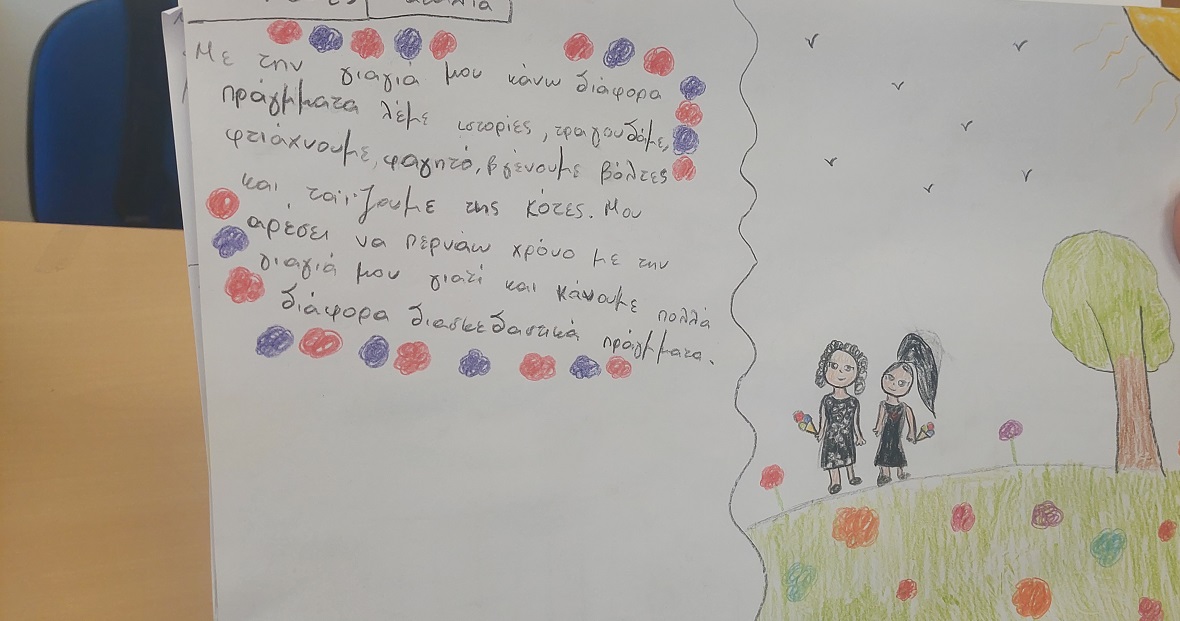 Με την γιαγιά μου κάνω διάφορα
πράγμματα λέμε ιστορίες, τραγουδάμε,
φτιάχνουμε, φαγητό, βγένουμε βόλτες
και ταϊζουμε της κότες. Μου
αρέσει να περνάω χρόνο με την
γιαγιά μου γιατί και κάνουμε πολλά
διάφορα διασκεδαστικά πράγμματα.